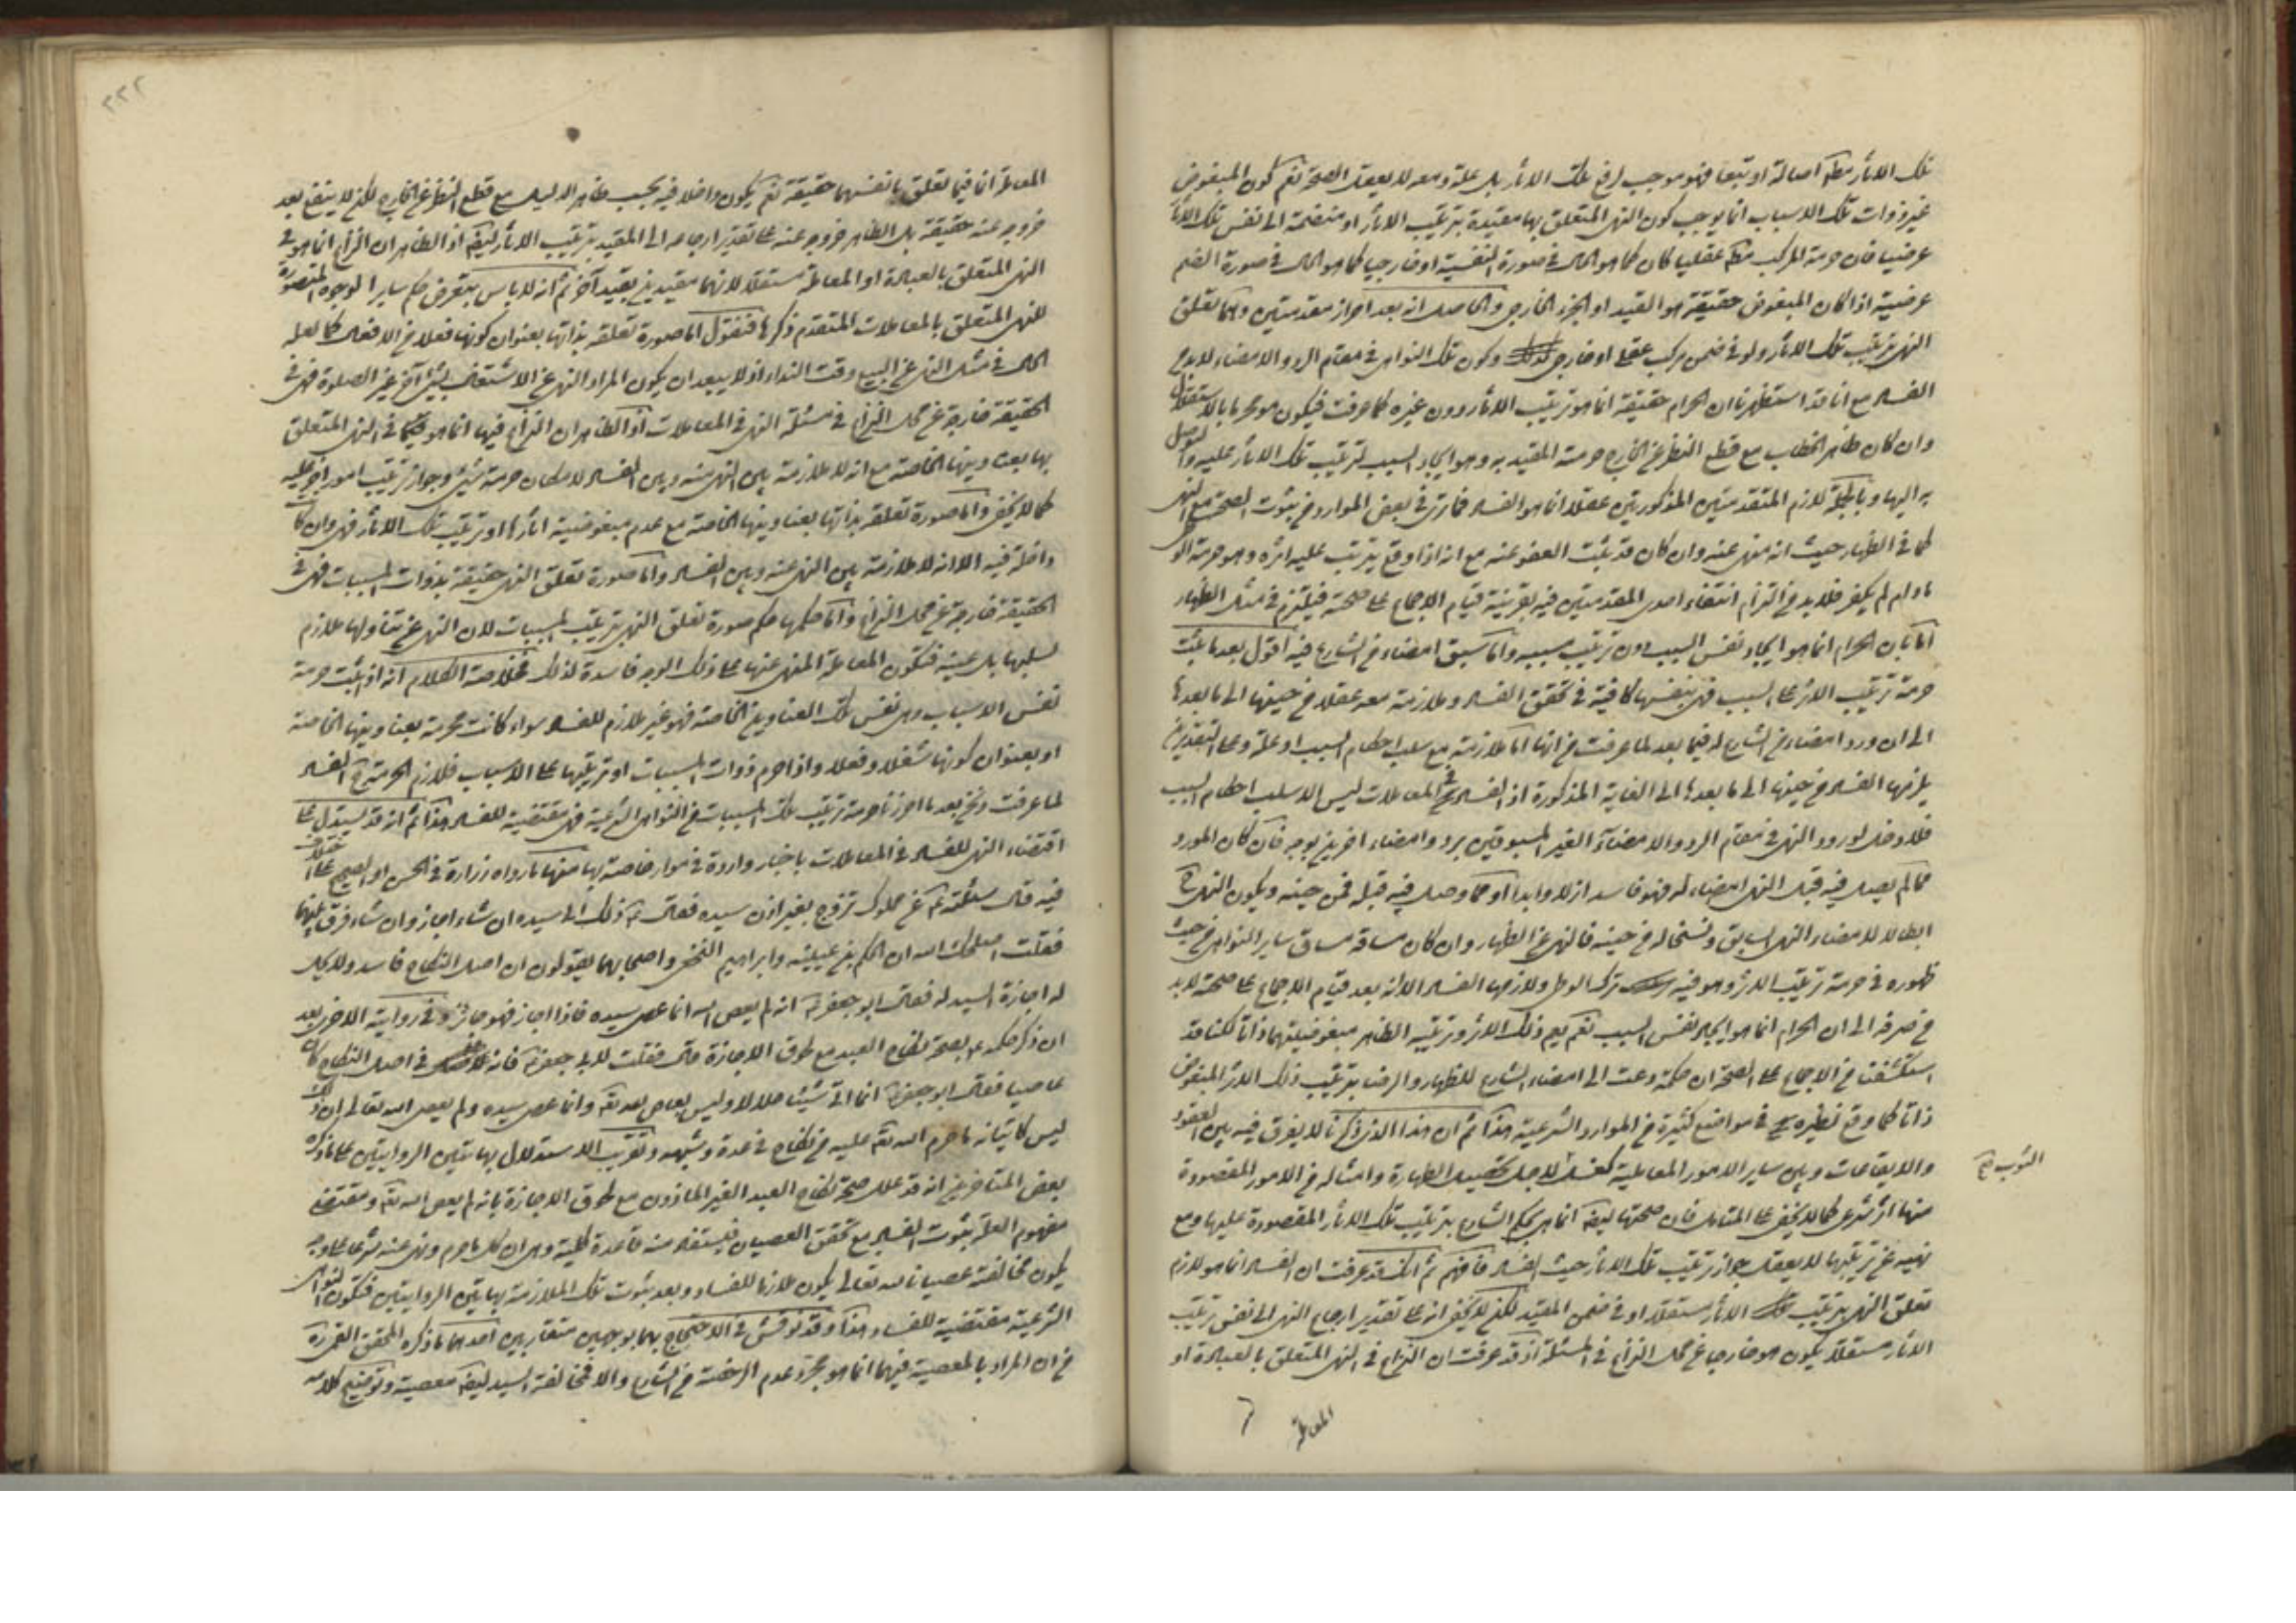 تلك الاثار مطلقا اصالة او تبعا فهو موجب لرفع تلك الاثار بل علة ومعه لا يعقل الصحة نعم كون المبغوض
غير ذوات تلك الاسباب انما يوجب كون النهى المتعلق بها مقيدة بترتيب الاثار او منضمة الى نفس تلك الاثار
عرضيا فان حرمة المركب مطلقا عقليا كان كما هو الحال في صورة النفسية او خارجيا كما هو الحال في صورة الضم
عرضية اذا كان المبغوض حقيقة هو القيد او الجزء الخارجى والحاصل انه بعد احراز مقدمتين وهما تعلق
النهى بترتيب تلك الاثار ولو في ضمن مركب عقلى او خارجى وكون تلك النواهى في مقام الرد والامضاء لا بد من
الفساد مع انا قد استظهرنا ان الحرام حقيقة انما هو ترتيب الاثار دون غيره كما عرفت فيكون هو محرما بالاستقلال
وان كان ظاهر الخطاب مع قطع النظر عن الخارج حرمة المقيد به وهو ايجاد السبب لترتيب تلك الاثار عليه والتوصل
به اليها وبالجملة لازم المقدمتين المذكورتين عقلا انما هو الفساد فما ترى في بعض الموارد من ثبوت الصحة مع النهى
كما في الظهار حيث انه منهى عنه وان كان قد ثبت العفو عنه مع انه اذا وقع يترتب عليه اثره وهو حرمة الوطى
ما دام لم يكفر فلا بد من التزام انتفاء احدى المقدمتين فيه بقرينة قيام الاجماع على صحته فيلتزم في مثل الظهار
اما بان الحرام انما هو ايجاد نفس السبب دون ترتيب مسببه واما سبق امضاء من الشارع فيه اقول بعد ما ثبت
حرمة ترتيب الاثر على السبب فهى بنفسها كافية في تحقق الفساد وملازمة معه عقلا من حينها الى ما بعدها
الى ان ورد امضاء من الشارع له فيما بعد لما عرفت من انها اما ملازمة مع سلب احكام السبب او علة وعلى التقديرين
يلزمها الفساد من حينها الى ما بعدها الى الغاية المذكورة اذ الفساد في المعاملات ليس الا سلب احكام السبب
فلا دخل لورود النهى في مقام الرد والامضاء الغير المسبوقين برد وامضاء اخرين بوجه فان كان المورد
مما لم يصل فيه قبل النهى امضاء له فهو فاسد ازلا وابدا او مما وصل فيه قبله فمن حينه ويكون النهى ح
ابطالا للامضاء السابق ونسخا له من حينه فالنهى عن الظهار وان كان مساقه مساق ساير النواهى من حيث
ظهوره في حرمة ترتيب الاثر وهو فيه ترك الوطى ولازمها الفساد الا انه بعد قيام الاجماع على صحته لا بد
من صرفه الى ان الحرام انما هو ايجاد نفس السبب نعم يعم ذلك الاثر وترتيبه الظاهر مبغوضيتهما ذاتا لكنا قد
استكشفنا من الاجماع على الصحة ان حكمة دعت الى امضاء الشارع للظهار والرضا بترتيب ذلك الاثر المبغوض
ذاتا كما وقع نظيره في مواضع كثيرة من الموارد الشرعية هذا ثم ان هذا الذى ذكرنا لا يفرق فيه بين العقود
والايقاعات وبين ساير الامور المعاملية كغسل لاجل تحصيل الطهارة وامثاله من الامور المقصودة
الثوب صح
منها اثر شرعى كما لا يخفى على المتامل فان صحتها ايضا انما هى بحكم الشارع بترتيب تلك الاثار المقصورة عليها ومع
نهيه عن ترتيبها لا يعقل جواز ترتيب تلك الاثار حيث الفساد فافهم ثم انك قد عرفت ان الفساد انما هو لازم
تعلق النهى بترتيب الاثار مستقلا او في ضمن المقيد لكن لا يخفى انه على تقدير ارجاع النهى الى نفس ترتيب
الاثار مستقلا يكون هو خارجا عن محل النزاع في المسئلة اذ قد عرفت ان النزاع في النهى المتعلق بالعبادة او
المعاملة
٢٢٢
المعاملة انما فيما تعلق بانفسهما حقيقة نعم يكون داخلا فيه بحسب ظاهر الدليل مع قطع النظر عن الخارج لكن لا ينفع بعد
خروجه عنه حقيقة بل الظاهر خروجه عنه على تقدير ارجاعه الى المقيد بترتيب الاثار ايضا اذ الظاهر ان النزاع انما هو في
النهى المتعلق بالعبادة او المعاملة مستقلا لا بهما مقيدين بقيد آخر ثم انه لا باس بتعرض حكم ساير الوجوه المتصورة
للنهى المتعلق بالمعاملات المتقدم ذكرها فنقول اما صورة تعلقه بذاتها بعنوان كونها فعلا من الافعال كما لعله
الحال في مثل النهى عن البيع وقت النداء اذ لا يبعد ان يكون المراد النهى عن الاشتغال بشئ آخر غير الصلوة فهى في
الحقيقة خارجة عن محل النزاع في مسئلة النهى في المعاملات اذ الظاهر ان النزاع فيها انما هو فيما في النهى المتعلق
بها بعناوينها الخاصة مع انه لا ملازمة بين النهى عنه وبين الفساد لامكان حرمة شئ وجواز ترتيب امور اخر عليه
كما لا يخفى واما صورة تعلقه بذاتها بعناوينها الخاصة مع عدم مبغوضية اثارها او ترتيب تلك الاثار فهى وان كانت
داخلة فيه الا انه لا ملازمة بين النهى عنه وبين الفساد واما صورة تعلق النهى حقيقة بذوات المسببات فهى في
الحقيقة خارجة عن محل النزاع واما حكمها حكم صورة تعلق النهى بترتيب المسببات لان النهى عن تناولها ملازم
لسلبها بل عينه فتكون المعاملة المنهى عنها على ذلك الوجه فاسدة لذلك فخلاصة الكلام انه اذا ثبت حرمة
نفس الاسباب وهى نفس تلك العناوين الخاصة فهو غير ملازم للفساد سواء كانت محرمة بعناوينها الخاصة
او بعنوان كونها شغلا وفعلا واذا حرم ذوات المسببات او ترتيبها على الاسباب فلازم الحرمة ح الفساد
لما عرفت ونحن بعد ما احرزنا حرمة ترتيب تلك المسببات من النواهى الشرعية فهى مقتضية للفساد هذا ثم انه قد يستدل على
اقتضاء النهى للفساد في المعاملات باخبار واردة في موارد خاصة بها منها ما رواه زرارة في الحسن او الصحيح على الخلاف
فيه قال سئلته ع عن مملوك تزوج بغير اذن سيده فقال ع ذلك الى سيده ان شاء اجاز وان شاء فرق بينهما
فقلت اصلحك الله ان الحكم بن عيينة وابراهيم النخعى واصحابهما يقولون ان اصل النكاح فاسد ولا يحل
له اجازة السيد له فقال ابو جعفر ع انه لم يعص الله انما عصى سيده فاذا اجاز فهو جائز وفي روايته الاخرى بعد
ان ذكر حكمه ع بصحة نكاح العبد مع لحوق الاجازة قال فقلت لابى جعفر ع فانه في اصل النكاح كان
عاصيا فقال ابو جعفر ع انما اتى شيئا حلالا وليس بعاص لله تعالى وانما عصى سيده ولم يعص الله تعالى ان ذلك
ليس كاتيانه ما حرم الله تعالى عليه من نكاح في عدة وشبهه وتقريب الاستدلال بهاتين الروايتين على ما ذكره
بعض المتاخرين انه قد علل صحة نكاح العبد الغير الماذون مع لحوق الاجازة بانه لم يعص الله تعالى ومقتضى
مفهوم العلة ثبوت الفساد مع تحقق العصيان فيستفاد منه قاعدة كلية وهى ان كل ما حرم ونهى عنه شرعا على وجه
يكون مخالفته عصيانا لله تعالى يكون ملازما للفساد وبعد ثبوت تلك الملازمة بهاتين الروايتين فتكون النواهى
الشرعية مقتضية للفساد هذا وقد نوقش في الاحتجاج بهما بوجهين متقاربين احدهما ما ذكره المحقق القمى ره
من ان المراد بالمعصية فيهما انما هو مجرد عدم الرخصة من الشارع والا فمخالفة السيد ايضا معصية وتوضيح كلامه